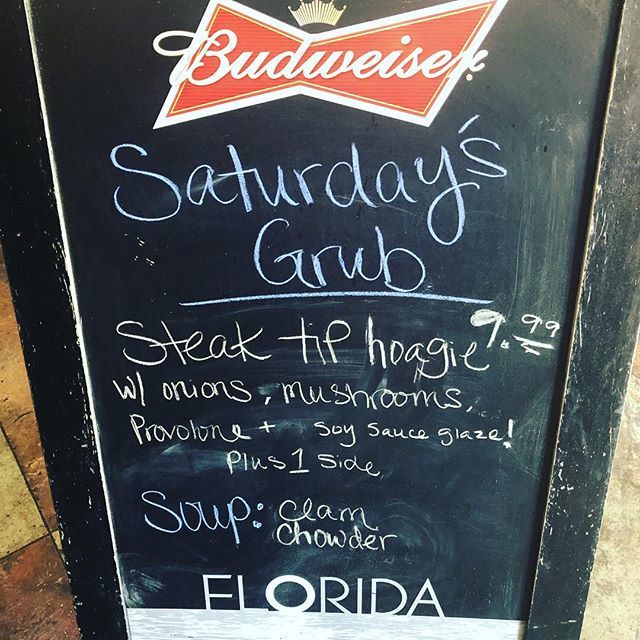 Budweiser
Saturday's
Grub
Steak tip hoagie 9.99
w/ onions, mushrooms,
Provolone + Soy Sauce glaze!
Plus 1 Side
Soup: Clam
Chowder
FLORIDA